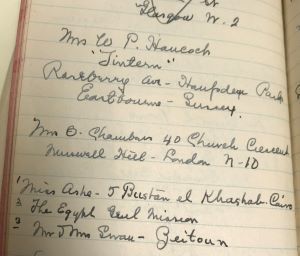 St
Glasgow W. 2
Mrs W P. Hancock
"Tintern"
Roseberry Ave - Hampden Park
Eastbourne - Sussex.
Mrs E. Chambers 40 Church Crescent
Muswell Hill - London N-10
1 Miss Ashe - 5 Bustan el Khashab - Cairo
2 The Egypt Genl Mission
3 Mr & Mrs Swan - Zeitoun